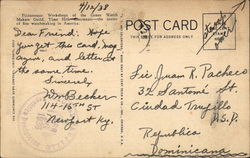 4/12/38
Picturesque Workshops of the Gruen Watch
Makers Guild, Time Hill, Cincinnati—the center
of fine watchmaking in America.
POST CARD
THIS SPACE FOR ADDRESS ONLY
Dear Friend: Hope
you get the card, may
again, and letter at
the same time.
Sincerely
Becker
114-16th ST
Newport Ky.
Sr Juan R. Pacheco
32 Santomé St.
Ciudad Trujillo
R.S.P.
Republica
Dominicana